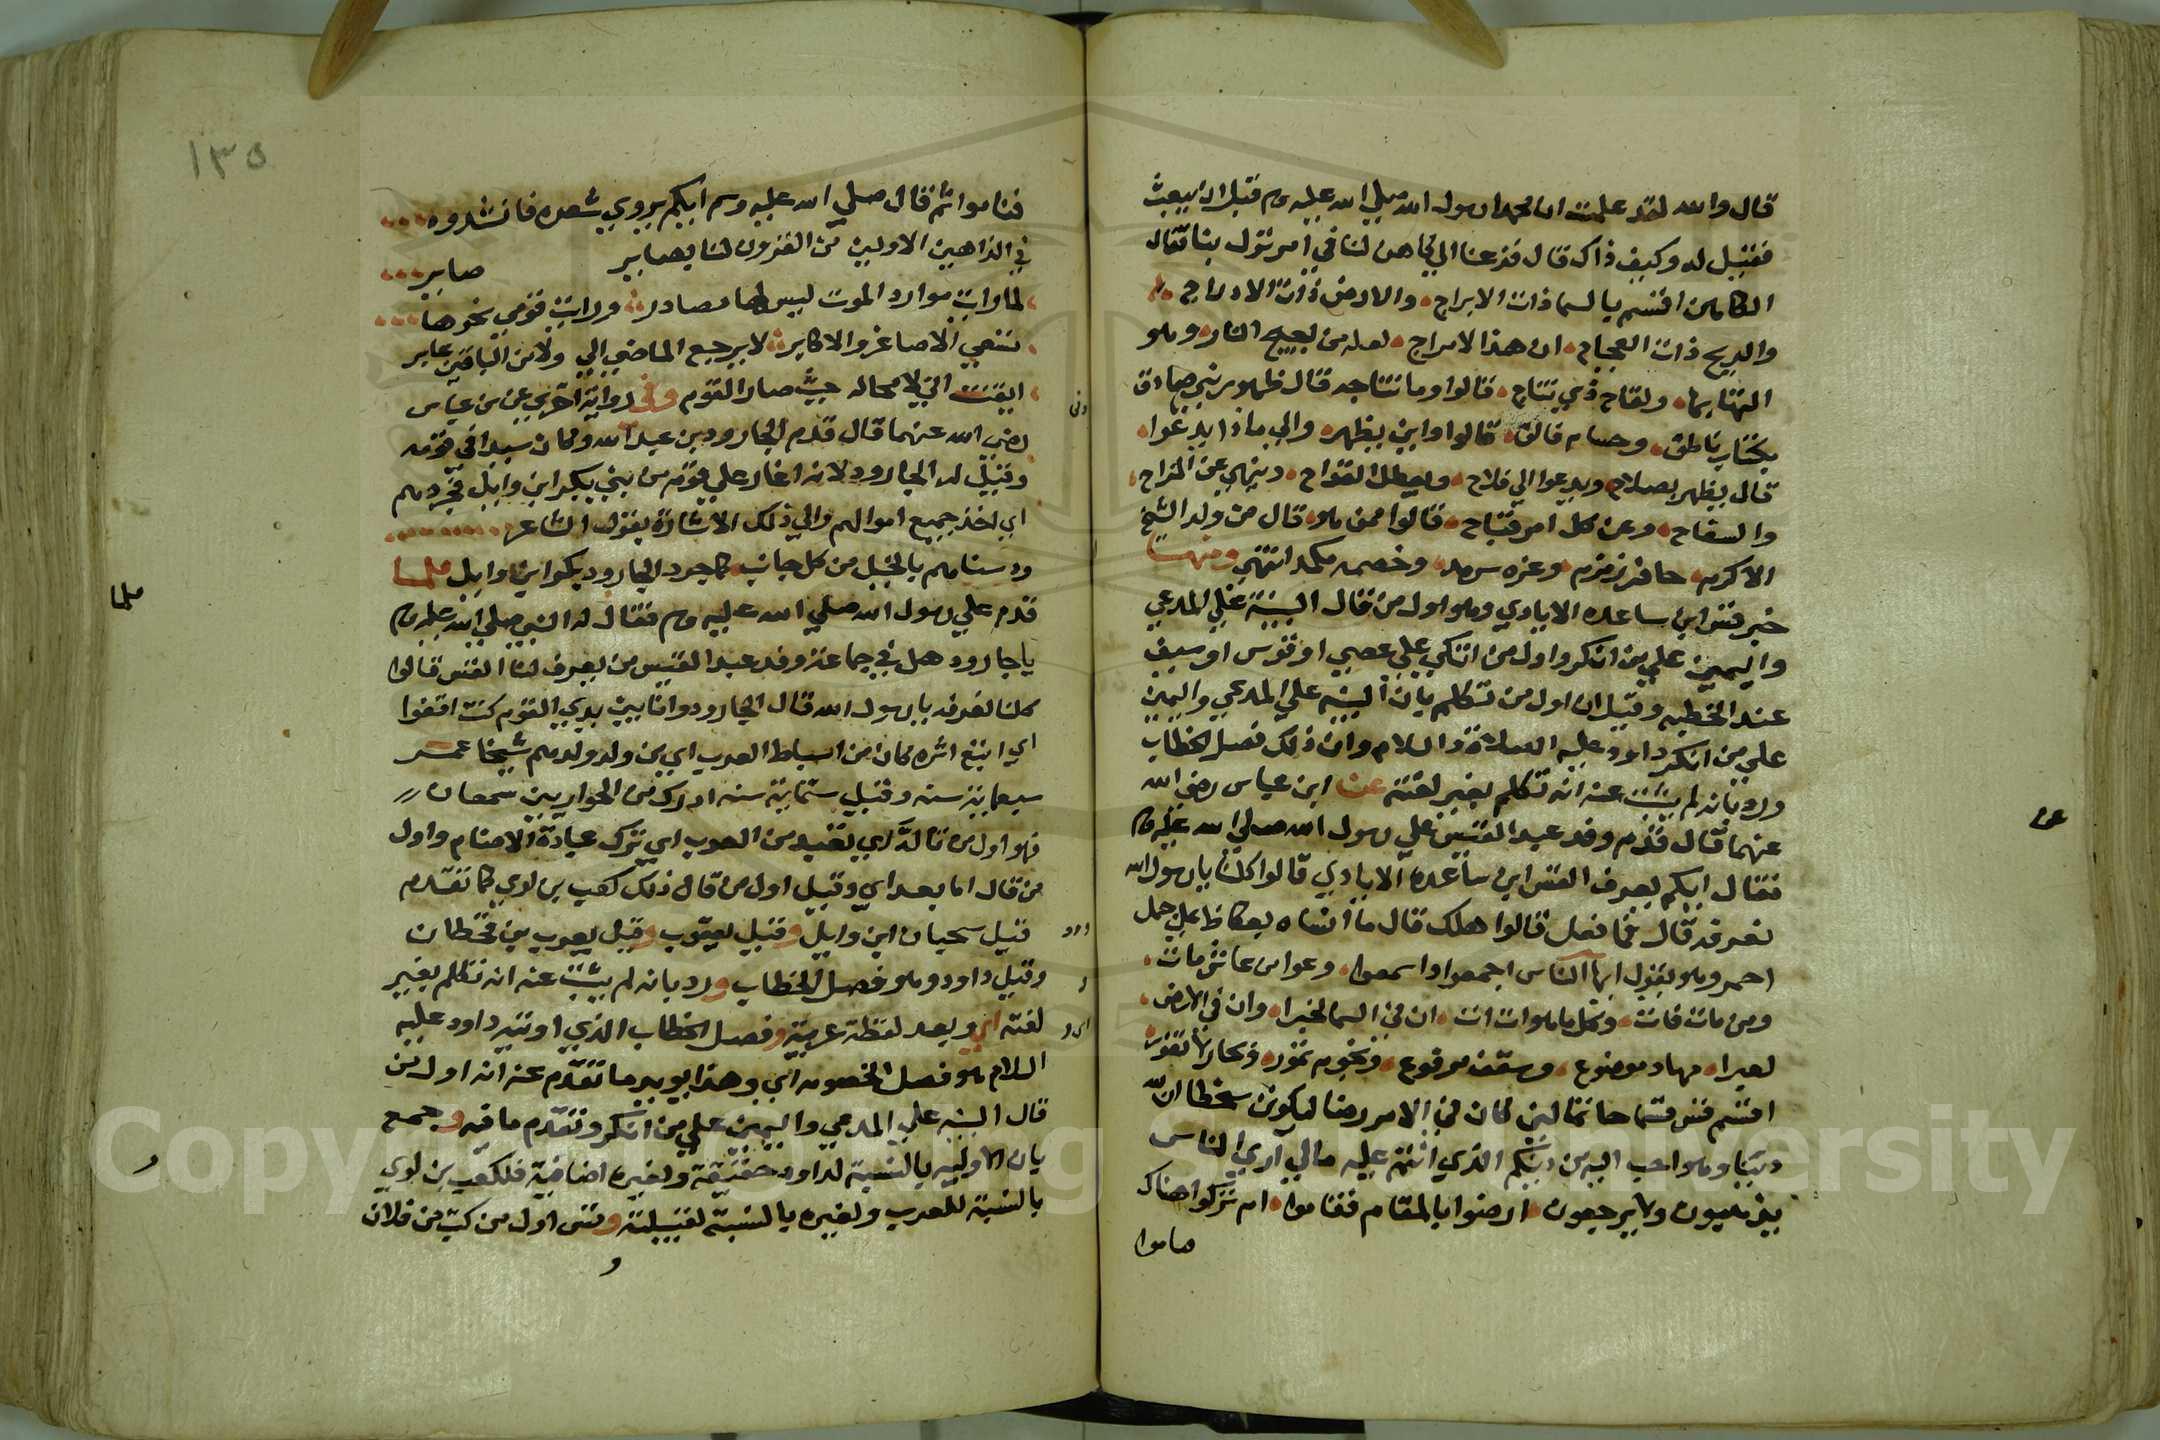 قال والله لقد علمت ان محمدا رسول الله صلي الله عليه وم قبل ان يبعث
فقيل له وكيف ذاك قال فزعنا الي كاهن لنا في امر نزل بنا فقال
الكاهن اقسم بالسما ذات الابراج والارض ذات الادراج
والريح ذات العجاج ان هذا لامراج لعله من لعيج النار وهو
النتايما ولقاح ذي نتاج قالوا وما نتاجه قال ظهور نبي صادق
بكتاب ناطق وحسام فالق قالوا واين يظهر والي ماذا يدعوا
قال يظهر بصلاح ويدعوا الي فلاح ويعطل القداح وينهي عن المراح
والسفاح وعن كل امر قباح قالوا ممن هو قال من ولد الشيخ
الاكرم حافر زمزم وعزه سرمد وخصمه مكمد انتهي ومنها
خبر قس ابن ساعده الايادي وهو اول من قال البينة علي المدعي
واليمين علي من انكر واول من اتكي علي عصي او قوس او سيف
عند الخطبه وقيل ان اول من تكلم بان البينه علي المدعي واليمين
علي من انكر داود عليه الصلاة والسلام وان ذلك فصل الخطاب
ورد بانه لم يثبت عنه انه تكلم بغير لغته عن ابن عباس رضي الله
عنهما قال قدم وفد عبد القيس علي رسول الله صلي الله عليه وم
فقال ايكم يعرف القس ابن ساعده الايادي قالوا كلنا يا رسول الله
نعرفه قال فما فعل قالوا هلك قال ما انساه بعكاظ علي جمل
احمر وهو يقول ايها الناس اجمعوا واسمعوا وعوا من عاش مات
ومن مات فات وكل ما هو ات ات ان في السما لخبرا وان في الارض
لعبرا مهاد موضوع وسقف مرفوع ونجوم تمور وبحار لا تغور
اقسم قس قسما حاتما لين كان في الامر رضا ليكونن سخطا ان لله
دينا وهو احب اليه من دينكم الذي انتم عليه مالي اري الناس
يذهبون ولا يرجعون ارضوا بالمقام فقاموا ام تركوا هناك
فناموا
عن
١٣٥
فناموا ثم قال صلي الله عليه وسم ايكم يروي شعره فانشدوه
في الذاهبين الاولين من القرون لنا بصاير صاير
لما رايت موارد الموت ليس لها مصادر ورايت قومي نحوها
تسعي الاصاغر والاكابر لا يرجع الماضي الي ولا من الباقين غابر
ايقنت اني لا محاله حيث صار القوم وفي رواية اخري عن بن عباس
رضي الله عنهما قال قدم الجارود بن عبد الله وكان سيدا في قومه
وقيل له الجارود لانه اغار علي قوم من بني بكر ابن وايل فجردهم
اي اخذ جميع اموالهم والي ذلك الاشارة بقول الشاعر
ودسناهم بالخيل من كل جانب كما جرد الجارود بكر ابن وايل فلما
قدم علي رسول الله صلي الله عليه وم فقال له النبي صلي الله عليه وم
يا جارود هل في جماعة وفد عبد القيس من يعرف لنا القس قالوا
كلنا نعرفه يا رسول الله قال الجارود وانا بين يدي القوم كنت اقفوا
اي اتبع اثره كان من اسباط العرب اي من ولد ولدهم شيخا عمر
سبعماية سنه وقيل ستماية سنه ادرك من الحواريين سمعان
فهو اول من تاله اي تعبد من العرب اي ترك عبادة الاصنام واول
من قال اما بعد اي وقيل اول من قال ذلك كعب بن لوي كما تقدم
قيل سحبان ابن وايل وقيل يعقوب وقيل يعرب بن قحطان
وقيل داود وهو فصل الخطاب ورد بانه لم يثبت عنه انه تكلم بغير
لغته اي وبعد لفظة عربية وفصل الخطاب الذي اوتيه داود عليه
السلام هو فصل الخصومه اي وهذا يويد ما تقدم عنه انه اول من
قال البينه علي المدعي واليمين علي من انكر وتقدم ما فيه وجمع
بان الاوليه بالنسبة لداود حقيقة ولغيره اضافية فلكعب بن لوي
بالنسبة للعرب ولغيره بالنسبة لقبيلته وقس اول من كتب من فلان
فلما
Copyright © King Saud University